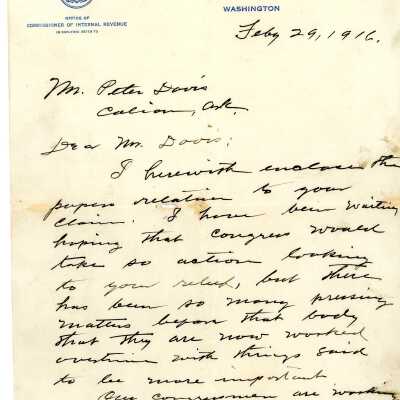 WASHINGTON
OFFICE OF
COMMISSIONER OF INTERNAL REVENUE
IN REPLYING REFER TO
Feby 29, 1916.
Mr. Peter Davis
Calion, Ark.
Dear Mr. Davis:
I herewith enclose the
papers relation to your
claim. I have been waiting
hoping that Congress would
take so action looking
to your relief, but there
has been so many pressing
matters before that body
that they are now worked
overtime with things said
to be more important
Our Congressmen are working